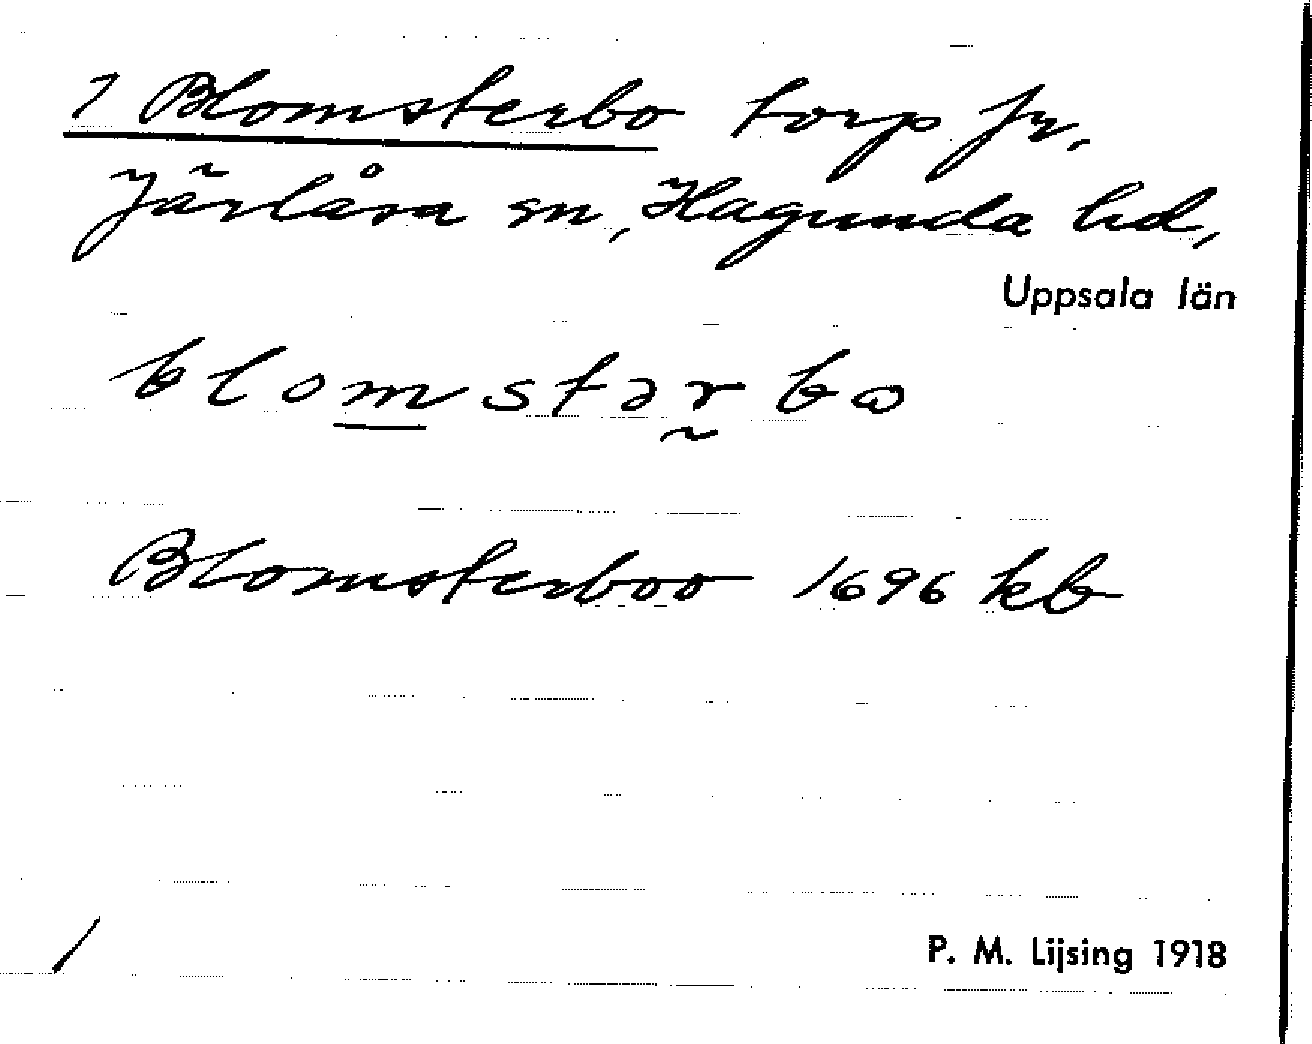 1 Blomsterbo torp fr,
Järlåsa sn, Hagunda hd,
Uppsala län
blomstərbω
Blomsterboo 1696 kb
P. M. Lijsing 1918